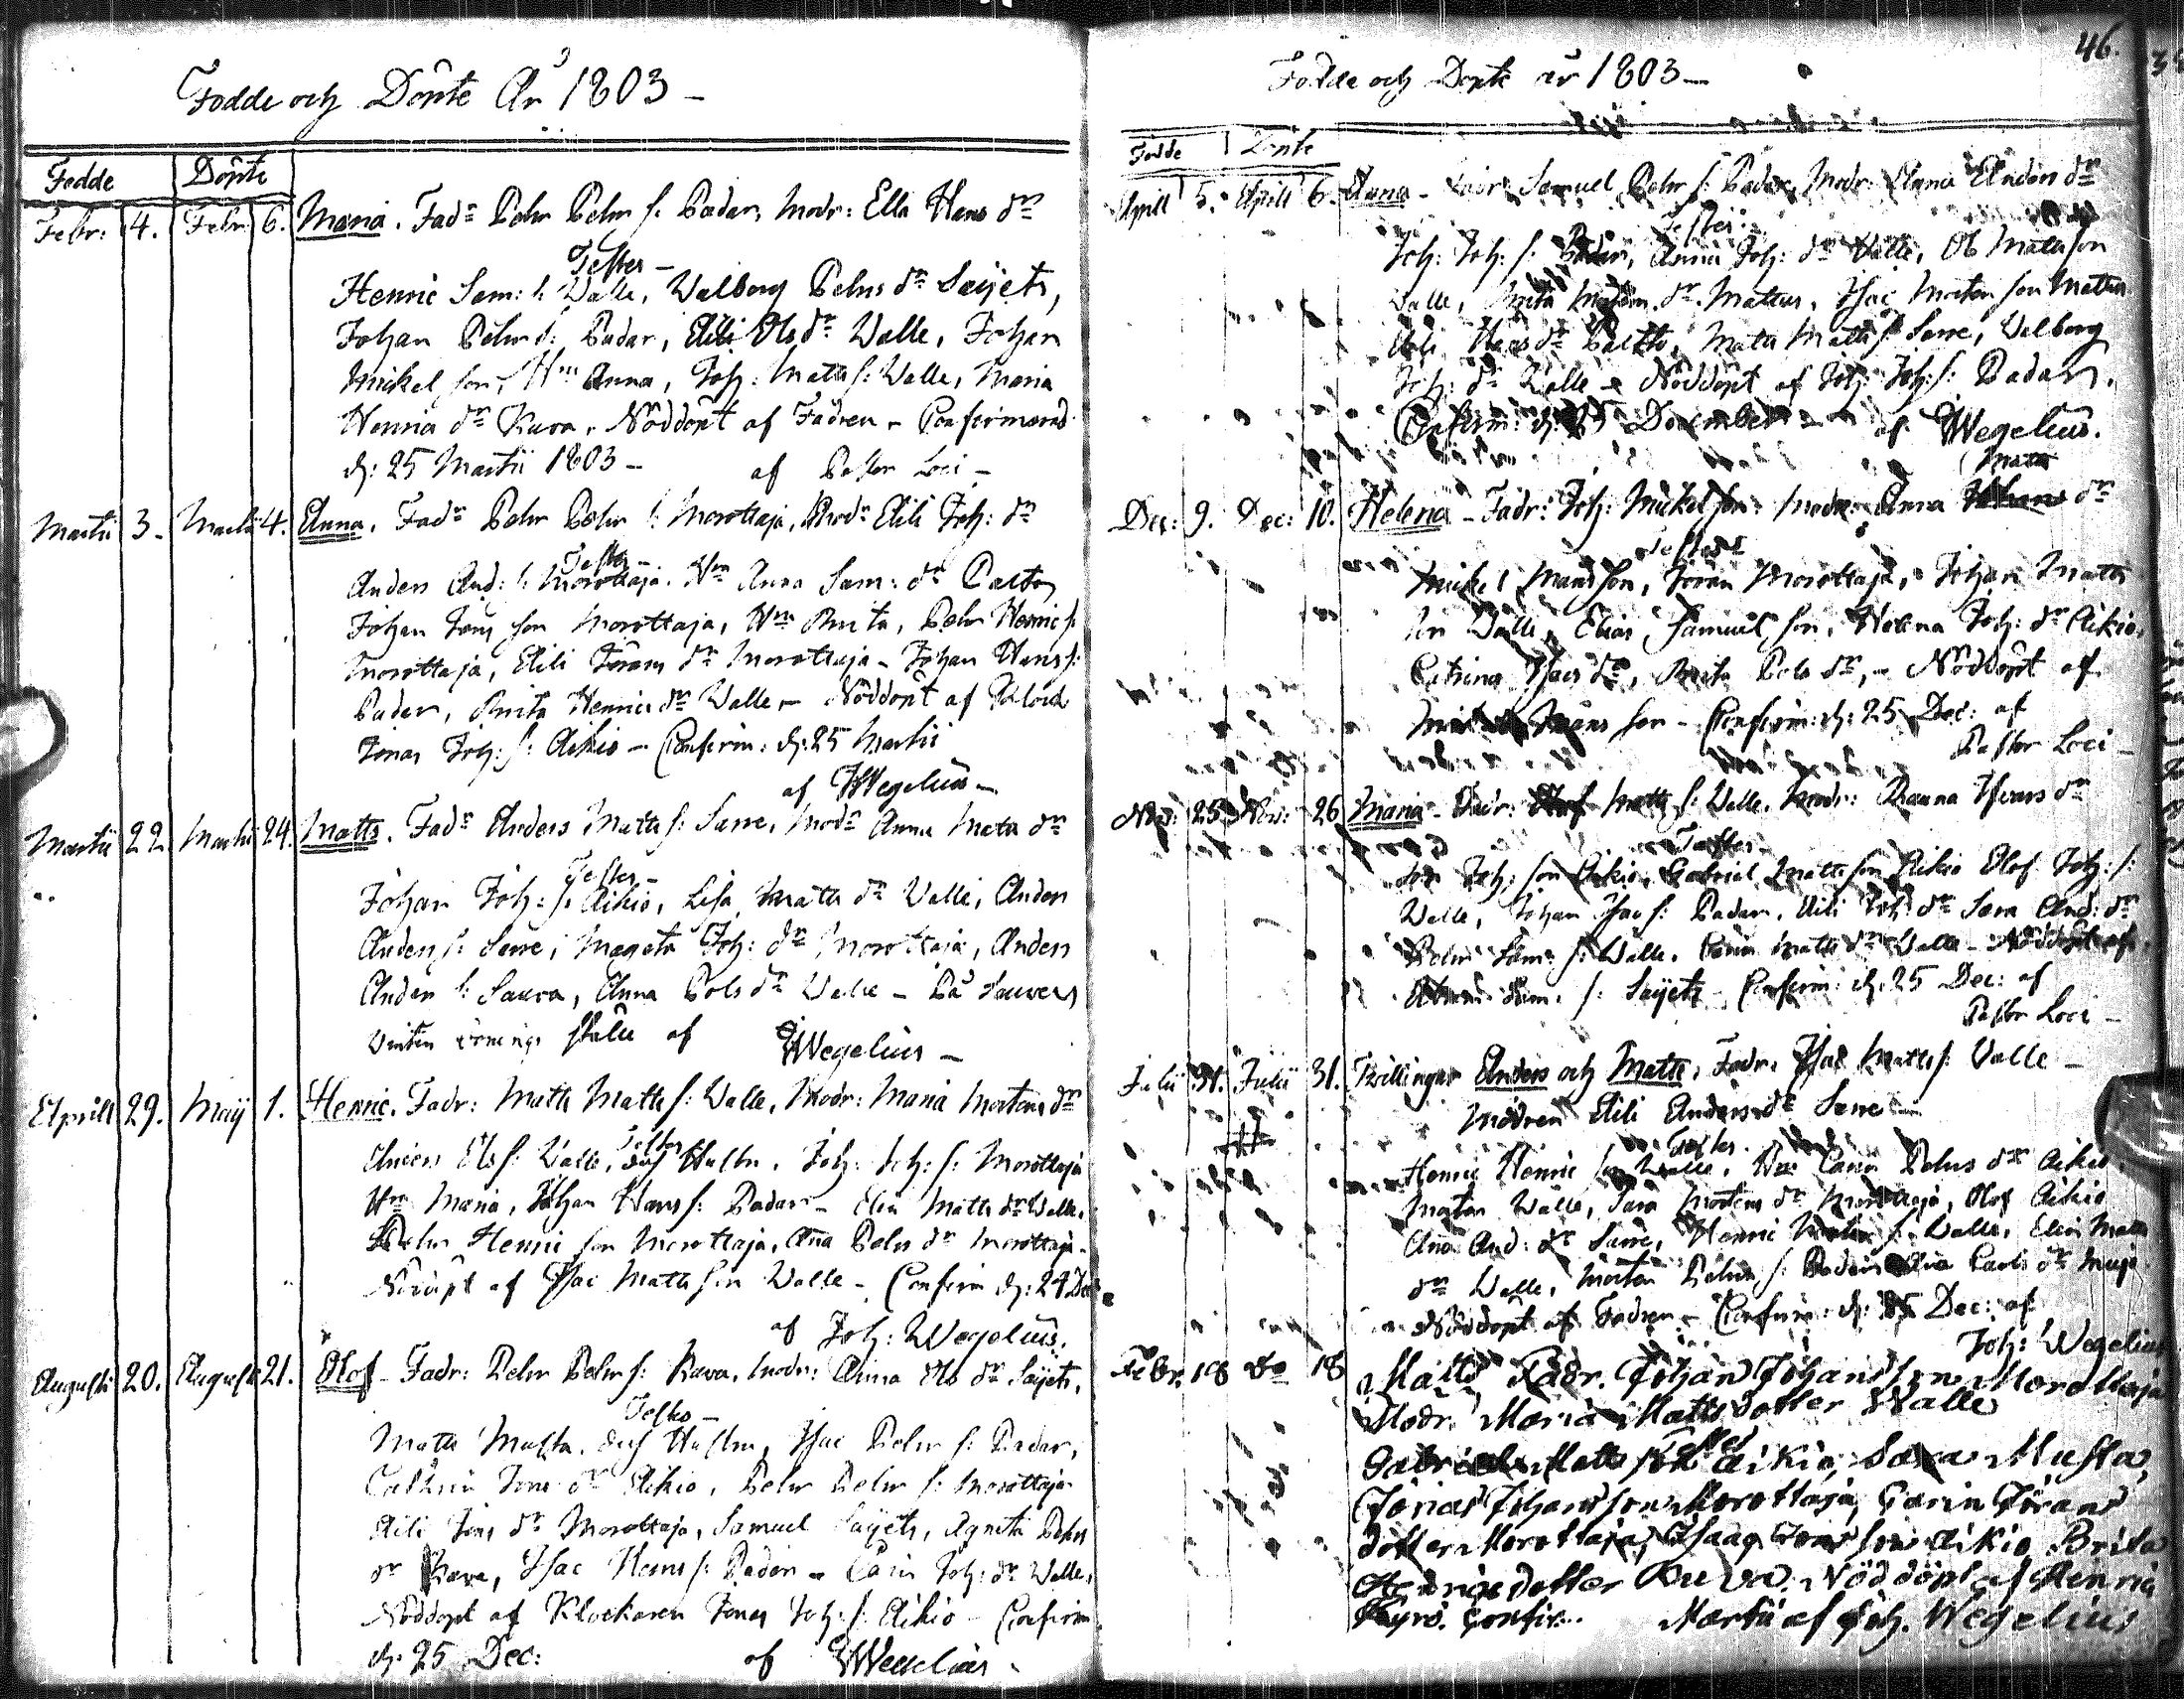 Födde och Döpte År 1803 –
Födde Döpte
Febr: 4. Febr 6. Maria. Fadr Pehr Pehr s: Padar, Modr: Ella Hans dr
Testes –
Henric Sam: s: Valle, Valborg Pehrs dr Saijets,
Johan Pehr s: Padar, Elili Ols dr Valle, Johan
Mickel son, Hm Anna, Joh: Matts s: Valle, Maria
Henric dr Kuva. Nöddöpt af Fadren – Confirmerad
d: 25 Martii 1803 – af Pastor Loci –
Martii 3. Martii 4. Anna. Fadr Pehr Pehr s: Morottaja, Modr Elili Joh: dr
Testes –
Anders And: s: Morottaja. Hm Anna Sam: dr
Johan Jons son Morottaja, Hm Brita, Pehr Henric s:
Morottaja, Elili Jörans dr Morottaja – Johan Hans s:
Padar, Brita Henrics dr Valle – Nöddöpt af Klock
Jonas Joh: s: Aikio – Confirm: d: 25 Martii
af Wegelius –
Martii 22. Martii 24. Matts. Fadr Anders Matts s: Sarre, Modr Anna Mats dr
Testes –
Johan Joh: s: Aikio, Lisa Matts dr Valle, Anders
Anders s: Sarre, Margeta Joh: dr Morottaja, Anders
Anders s: Saura, Anna Pols dr Valle – På Sauvers
vinter ställe af Wegelius –
Aprill 29. Maij 1. Henric. Fadr: Matts Matts s: Valle, Modr: Maria Mortens dr
Testes
Anders Ols s: Valle, dess Hustru. Joh: Joh: s: Morottaja
Hm Maria, Johan Hans s: Padar – Elin Matts dr Valle.
Pehr Henric son Morottaja, Anna Pehrs dr Morottaja –
Nöddöpt af Isac Matts son Valle – Confirm d: 24 Dec
af Joh: Wegelius.
Augusti 20. Augusti 21. Olof – Fadr: Pehr Pehr s: Kuva, Modr: Anna Ols dr Saijets,
Testes –
Matts Musta. dess Hustru, Isac Pehr s: Padar,
Cathrin Jons dr Aikio, Pehr Pehr s: Morottaja
Elili Jons dr Morottaja, Samuel Saijets, Agneta Pehrs
dr Kuva, Isac Hans s: Padar – Carin Joh: dr Valle,
Nöddöpt af Klockaren Jonas Joh: s: Aikio – Confirm
d: 25 Dec: af Wegelius
46.
Födde och Döpte år 1803 –
Födde Döpte
Aprill 5. Aprill 6. Anna – Fadr: Samuel Pehr s: Padar, Modr: Anna Anders dr
Testes:
Joh: Joh: s: Padar, Anna Joh: dr Valle, Ol: Mattsson
Valle, Brita dr Mattus, Isac Morten son Mattus
Elili Hans dr, Matts Matts s: Sarre, Valborg
Joh: dr Valle – Nöddöpt af Joh: Joh: s: Padar.
Confirm: d: 25 December – af Wegelius.
Matts
Dec: 9. Dec: 10. Helena – Fadr: Joh: Mickel son. Modr: Anna dr
Testes
Mickel Mansson, Jöran Morottaja, Johan Matts
son Valle, Elias Samuel son, Helena Joh: dr Aikio,
Catrina Isacs dr, Brita Pols dr, – Nöddöpt af
Måns son – Confirm: d: 25 Dec: af
Pastor Loci –
Nov: 25 Nov: 26 Maria – Fadr: Matts s: Valle, Modr: Hans dr
Testes –
Joh: son Aikio, Gabriel Matts son Aikio Olof Joh: s:
Valle, Johan Isac s: Padar, Elili Joh: dr Sara And: dr
Pehr Sam: s: Valle. Carin Matts dr Valle – Nöddöpt af
Sam: s: Saijets – Confirm: d: 25 Dec: af
Pastor Loci –
Julii 31. Julii 31. Tvillingar Anders och Matts, Fadr. Isac Matts s: Valle –
Modren Elili Anders dr Sarre –
Testes.
Henric Henric son Valle, Carin Pehrs dr Aikio,
Morten Valle, Sara Mortens dr Morottaja, Olof Aikio
Anna And: dr Sarre, Henric s: Valle, Elin Matts
dr Valle, Morten Pehr s: Padar Carls dr
Nöddöpt af Fadren – Confirm: d: 25 Dec: af
Joh: Wegelius
Febr. 18 do 18 Matts Fadr. Johan Johansson Morottaja
Modr. Maria Mattsdotter Walle
Testes
Gabriel Matts son Aikio, Sara Musta,
Jonas Johansson Morottaja, Carin Jörans
dotter Morottaja, Isaac Jons son Aikio Brita
Henrics dotter Kuva. Nöddöpt af Henric
Kyrö. Confir: Martii af Joh. Wegelius